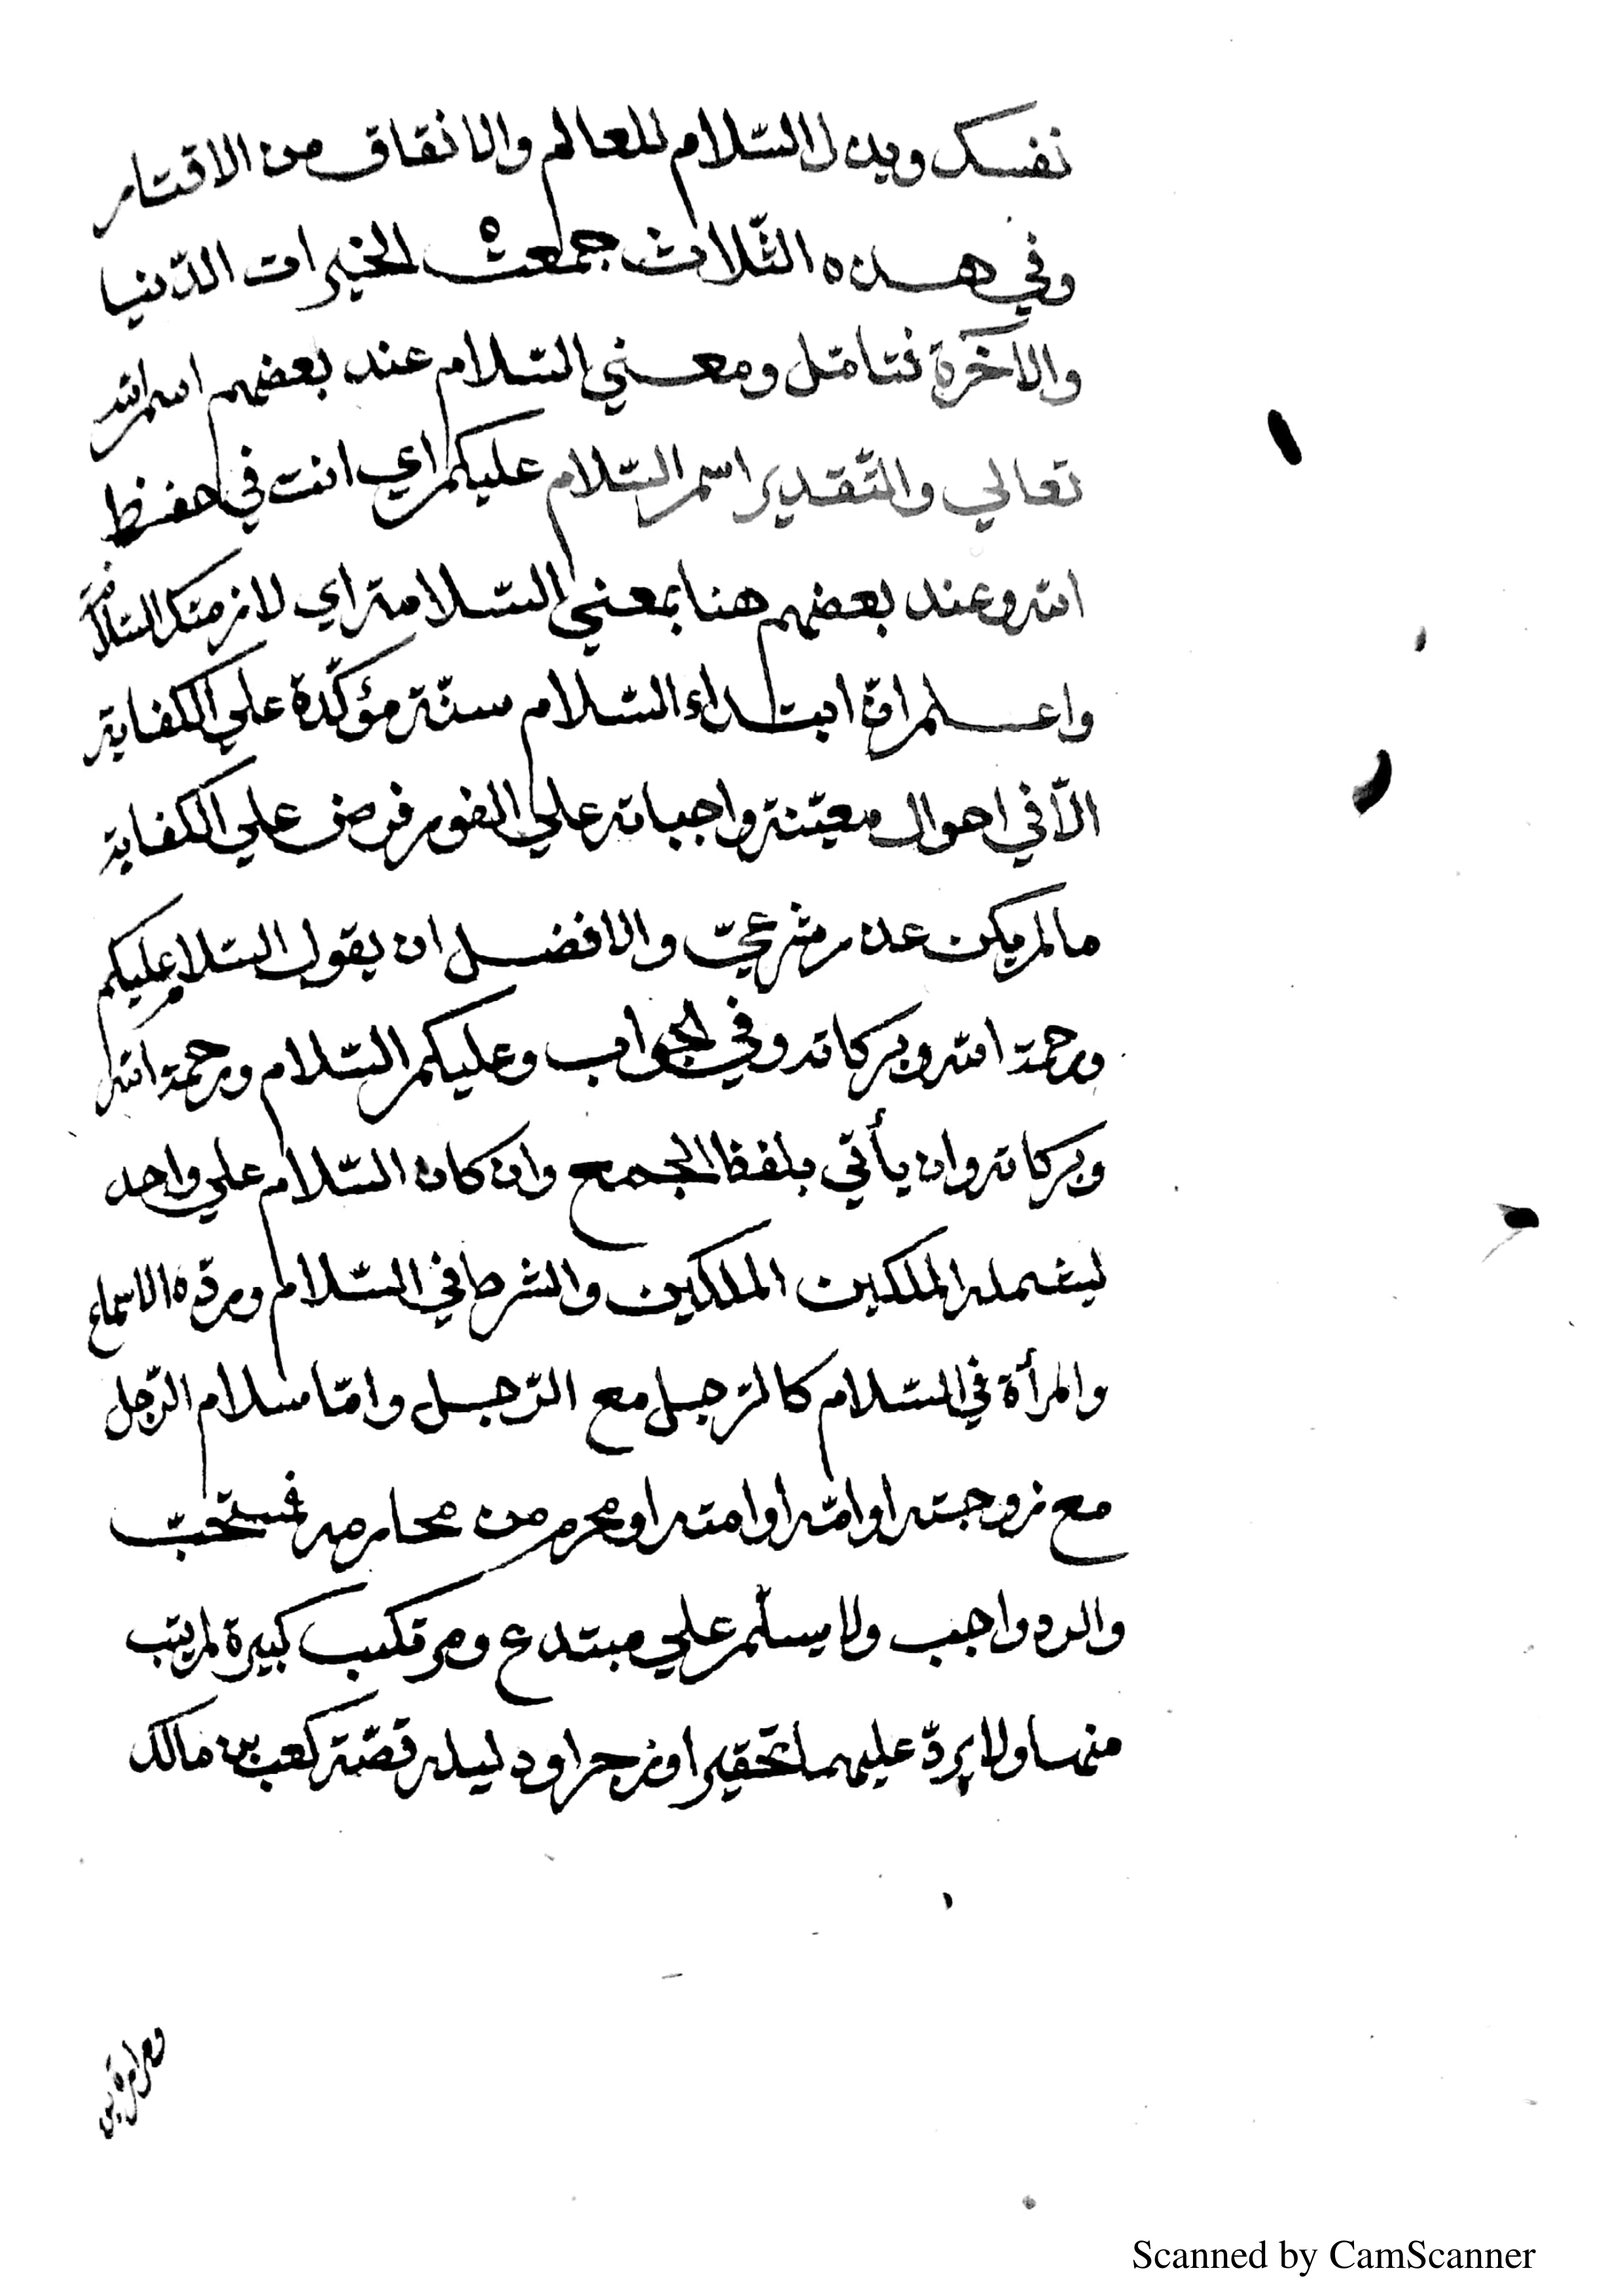 نفسك وبذل السّلام للعالم والانفاق من الاقتار
وفي هذه الثّلاث جمعت الخيرات الدّنيا
والآخرة فتامّل ومعني السّلام عند بعضهم اسم الله
تعالي والتّقدير اسم السّلام عليكم اي انت في حفظ
الله وعند بعضهم هنا بمعني السّلامة اي لازمتك السّلامة
واعلم انّ ابتداء السّلام سنّة مؤكّدة علي الكفاية
الّا في احوال معيّنة واجباته علي الفور فرض علي الكفاية
ما لم يكن عذر شرعيّ والافضل ان يقول السّلام عليكم
ورحمة الله وبركاته وفي الجواب وعليكم السّلام ورحمة الله
وبركاته وان يأتي بلفظ الجمع وان كان السّلام علي واحد
ليشمله الملكين الملكين والشرط في السّلام وردّه الاسماع
والمرأة في السّلام كالرّجل مع الرّجل وامّا سلام الرّجل
مع زوجته او امّه او امته او محرم من محارمه فمستحبّ
والرد واجب ولا يسلّم علي مبتدع ومرتكب كبيرة لم يتب
منهما ولا يردّ عليهما تحقيرا وزجرا ودليله قصّة كعب بن مالك
Scanned by CamScanner